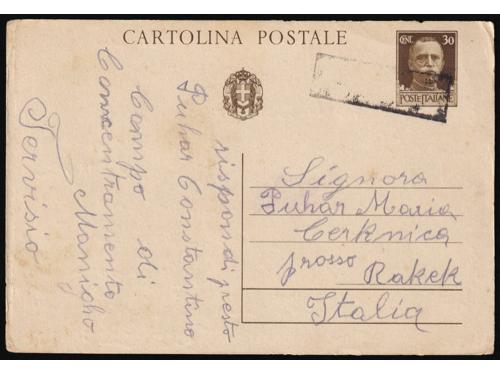 CARTOLINA POSTALE
CENT. 30
POSTE ITALIANE
rispondi presto
Puhar Constantino
Campo di
Concentramento
Manigho
Tervisio
Signora
Puhar Maria
Cerknica
presso Rakek
Italia